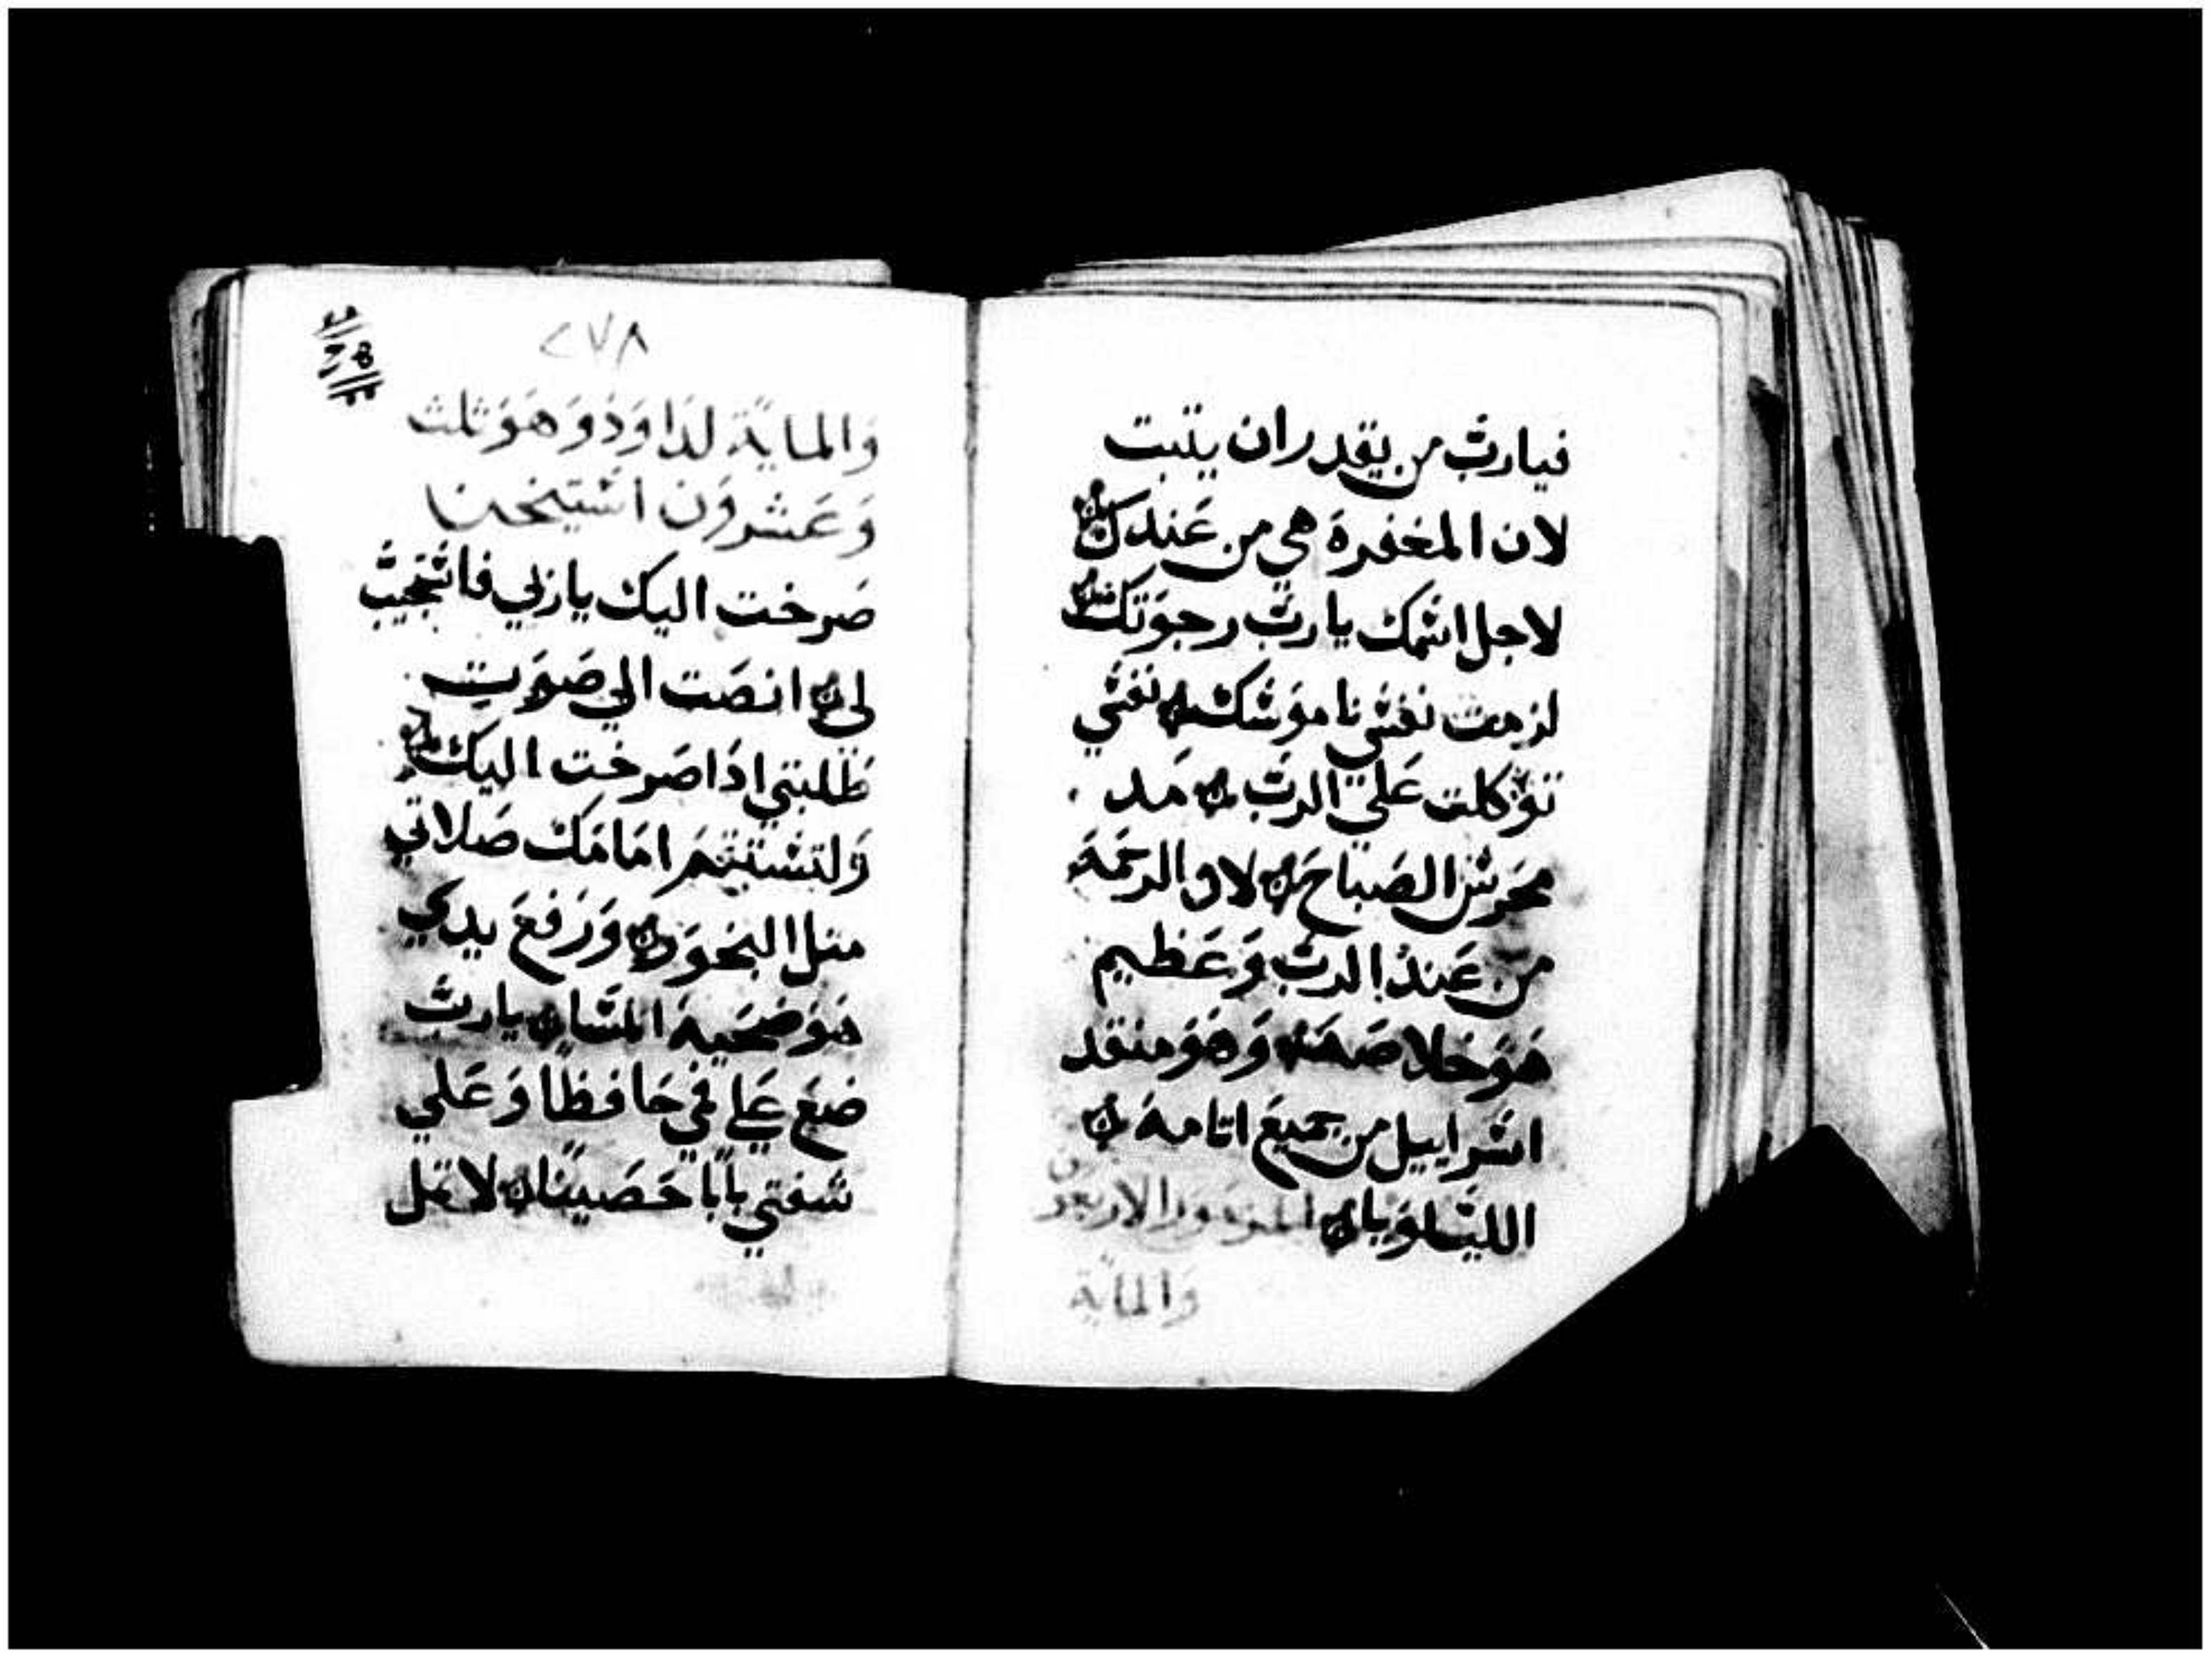 فيارب من يقدر ان يتبت
لان المغفرة هي من عندك
لاجل اسمك يارب رجوتك
لزمت نفسي ناموسك نفسي
توكلت علي الرب مد
محرس الصباح لان الرحمة
من عند الرب وعظيم
هو خلاصه وهو منقد
اسراييل من جميع اتامه
الليلويا المزمور الاربعون
والماية
٢٧٨
والماية لداوذ وهو ثلث
وعشرون استيخنا
صرخت اليك ياربي فاستجيب
لي انصت الي صوت
طلبتي اذا صرخت اليك
ولتستقم امامك صلاتي
متل البخور ورفع يدي
هو ضحية المسا يارب
ضع علي في حافظا وعلي
شفتي بابا حصينا لا تمل